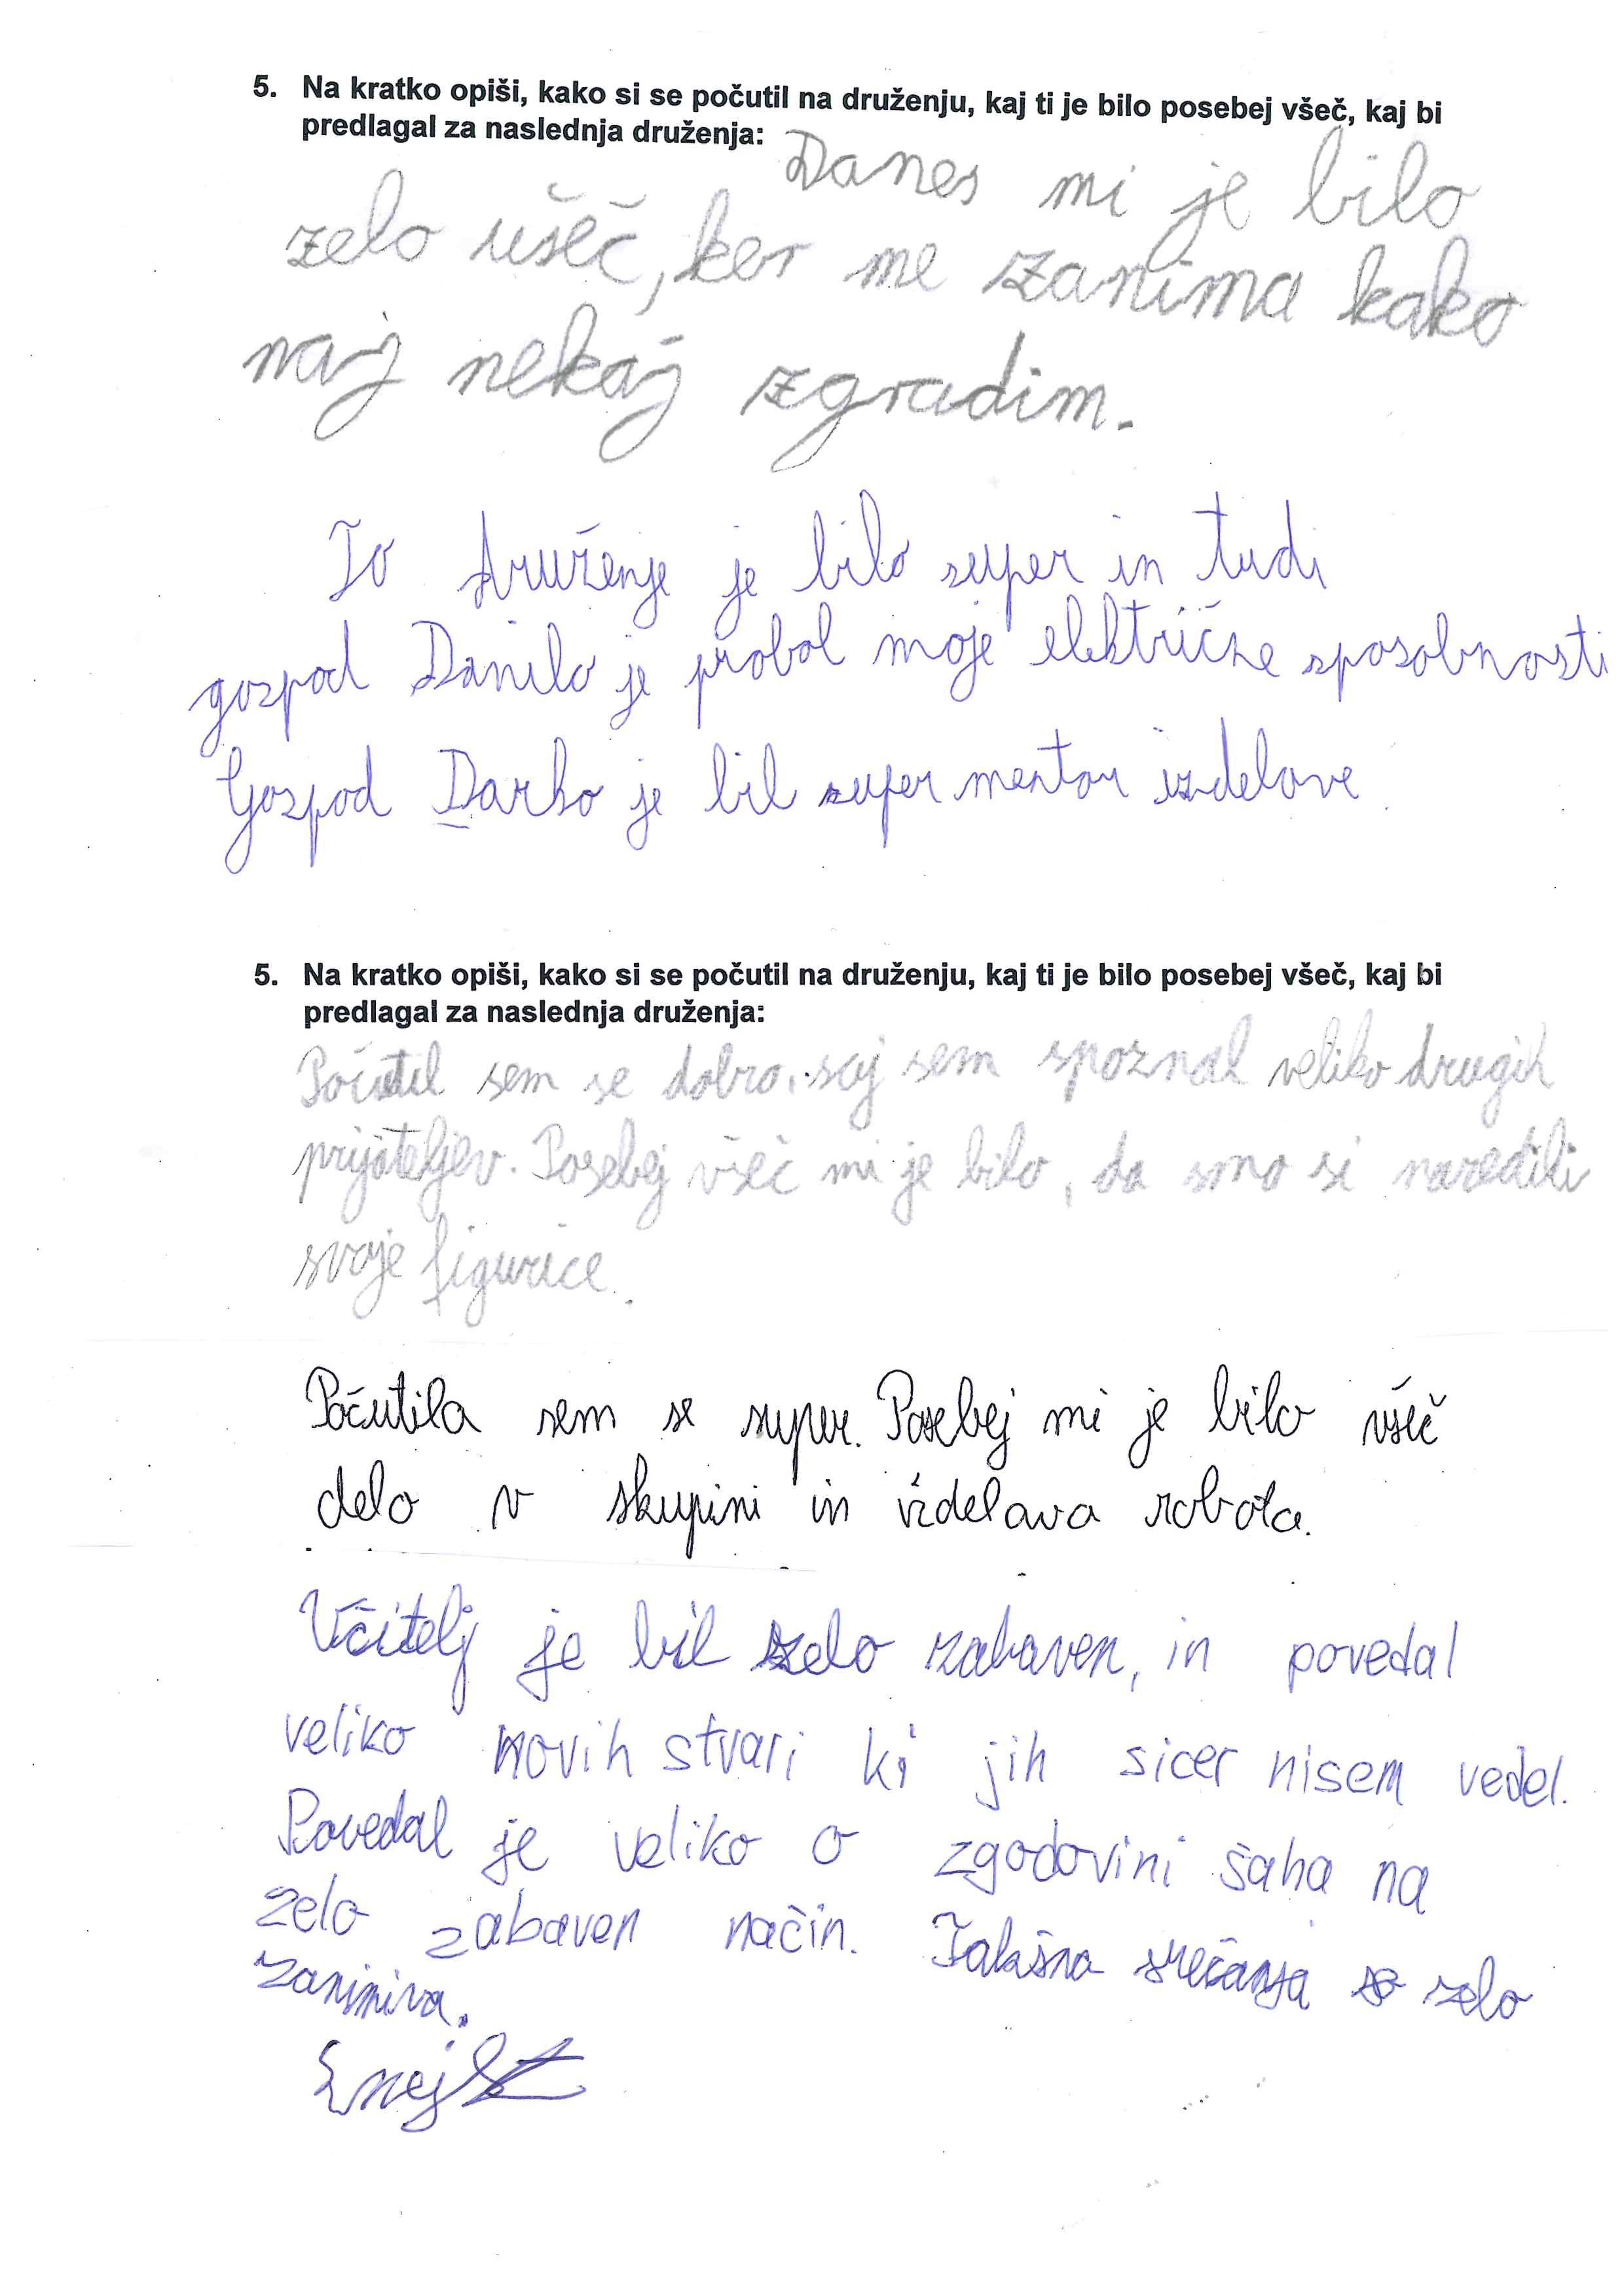 5. Na kratko opiši, kako si se počutil na druženju, kaj ti je bilo posebej všeč, kaj bi
predlagal za naslednja druženja:
Danes mi je bilo
zelo ušeč, ker me zanima kako
naj nekaj zgradim.
To druženje je bilo super in tudi
gospod Danilo je probal moje električne sposobnosti
Gospod Darko je bil super mentor izdelave
5. Na kratko opiši, kako si se počutil na druženju, kaj ti je bilo posebej všeč, kaj bi
predlagal za naslednja druženja:
Počutil sem se dobro, saj sem spoznal veliko drugih
prijateljev. Posebej všeč mi je bilo, da smo si naredili
svoje figurice.
Počutila sem se super. Posebej mi je bilo všeč
delo v skupini in izdelava robota.
Učitelj je bil zelo zabaven, in povedal
veliko novih stvari ki jih sicer nisem vedel.
Povedal je veliko o zgodovini šaha na
zelo zabaven način. Takšna srečanja so zelo
zanimiva.
Enej